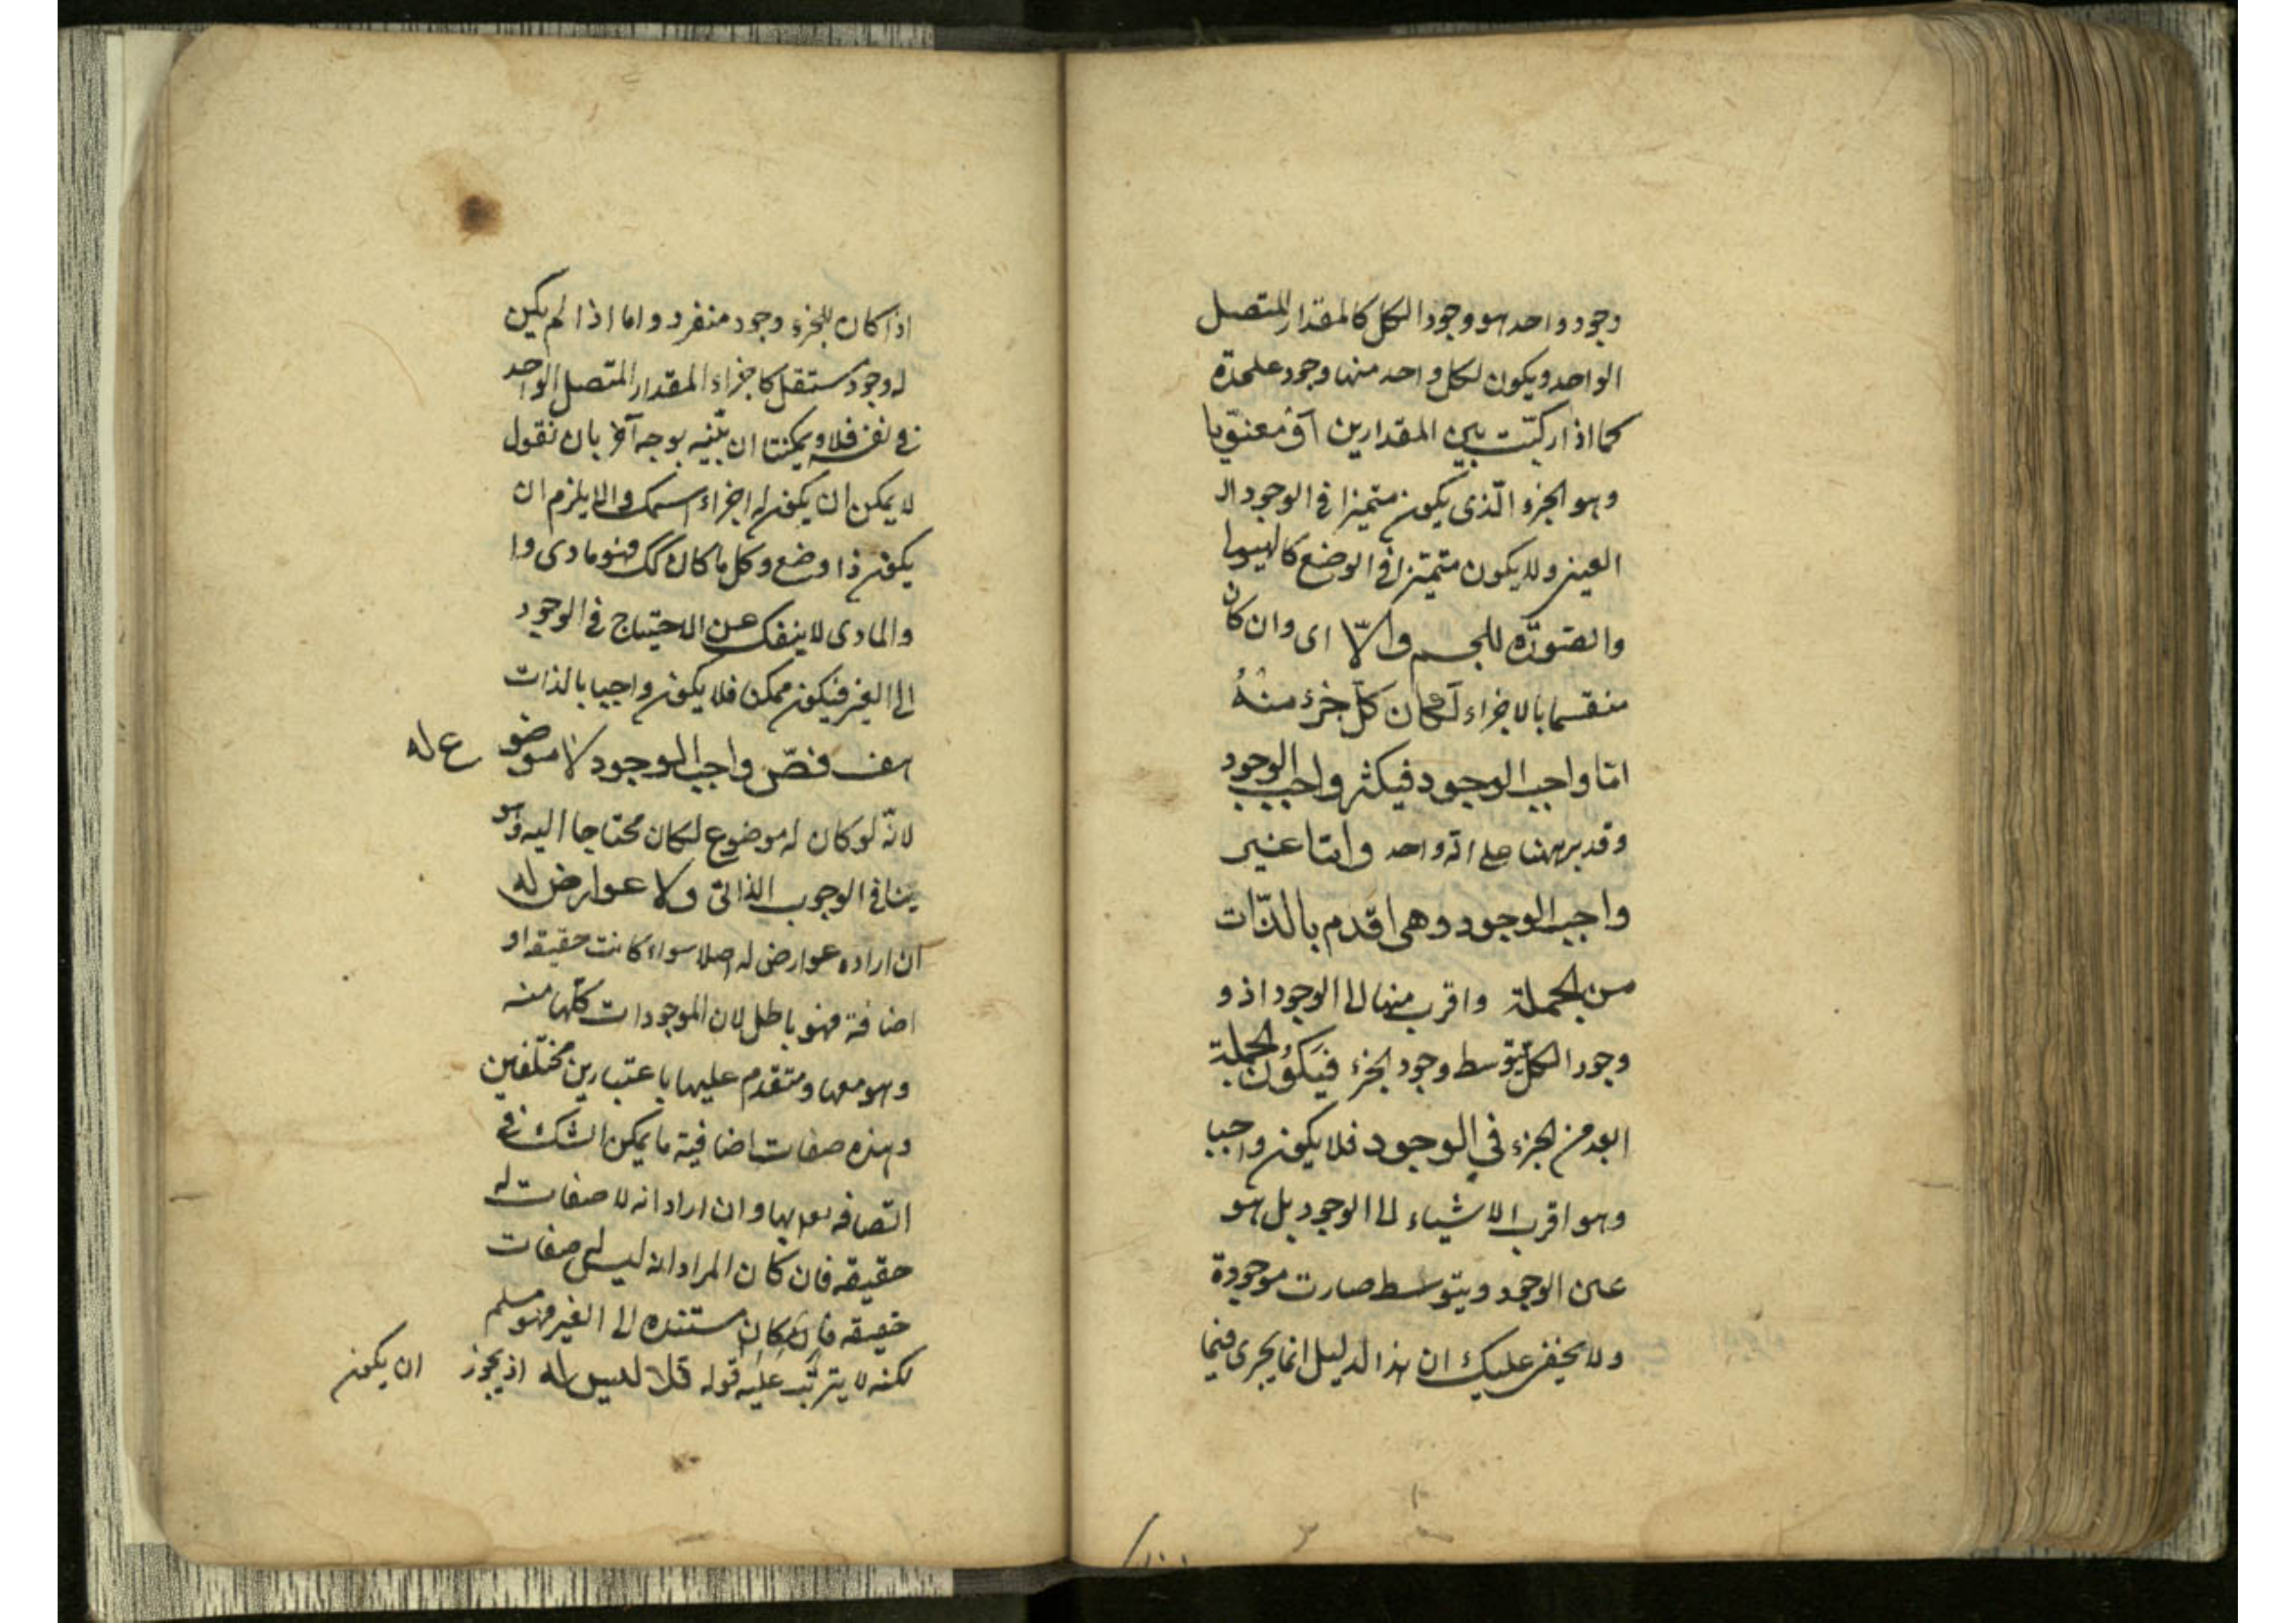 وجود واحد هو وجود الكل كالمقدار المتصل
الواحد ويكون لكل واحد منها وجود علىحدة
كما اذا ركبت بين المقدارين او معنويا
وهو الجزء الذى يكون متميزا فى الوجود
العينى ولا يكون متميزا فى الوضع كالهيولى
والصورة للجسم والّا اى وان كان
منقسما بالاجزاء لكان كل جزء منه
امّا واجب الوجود فيكثر واجب الوجود
وقد برهنا على انه واحد وامّا غير
واجب الوجود وهى اقدم بالذّات
من الجملة واقرب منها الى الوجود اذ و
وجود الكل يتوسط وجود الجزء فيكون الجملة
ابعد من الجزء فى الوجود فلا يكون واجبا
وهو اقرب الاشياء الى الوجود بل هو
عين الوجود ويتوسط صارت موجودة
ولا يخفى عليك ان هذا الدليل انما يجرى فيما
اذا كان للجزء وجود منفرد واما اذا لم يكن
له وجود مستقل كاجزاء المقدار المتصل الواحد
فى نفسه فلا ويمكننا ان نبيّنه بوجه آخر بان نقول
لا يمكن ان يكون له اجزاء والا يلزم ان
يكون ذا وضع وكل ما كان كك فهو مادى وا
والمادى لا ينفك عن الاحتياج فى الوجود
الى الغير فيكون ممكن فلا يكون واجبا بالذات
هف فصّ واجب الوجود لا موضوع له
لانّه لو كان له موضوع لكان محتاجا اليه وهو
ينافى الوجوب الذاتى ولا عوارض له
ان اراد عوارض له اصلا سواء كانت حقيقة او
اضافة فهو باطل لان الموجودات كلها منه
وهو معها ومتقدم عليها باعتبارين مختلفين
وهذه صفات اضافية ما يمكن الشك فى
اتصافه بها وان اراد انه لا صفات له
حقيقه فان كان المراد انه ليس له صفات
حقيقه كان مستنده الى الغير فهو مسلم
لكنه لا يترتب عليه قوله فلا لبس له اذ يجوز ان يكون